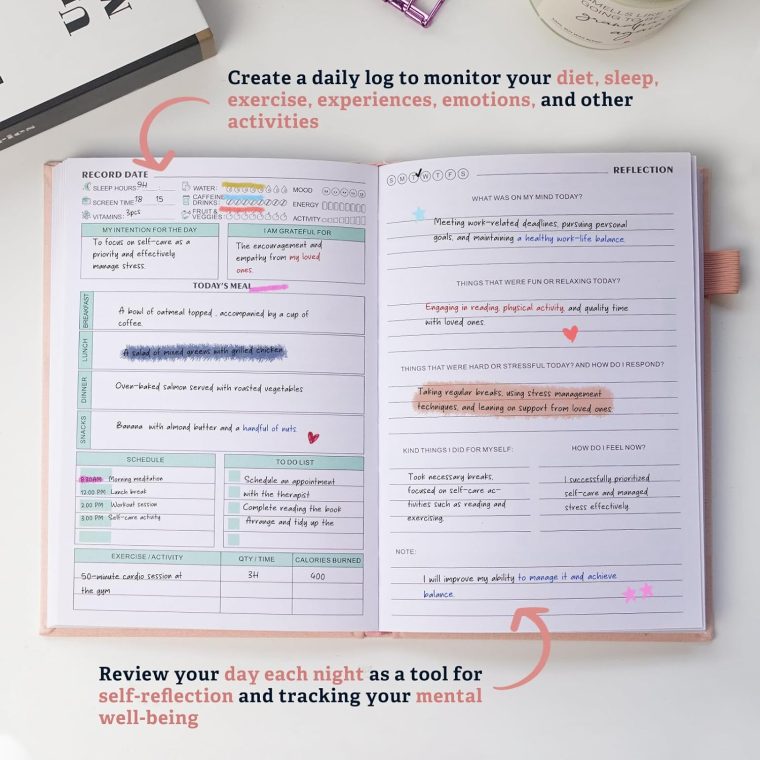 SMELLS LIKE
GOING TO BE
grandparents
again
Create a daily log to monitor your diet, sleep,
exercise, experiences, emotions, and other
activities
RECORD DATE
SLEEP HOURS 9H
SCREEN TIME 18 15
VITAMINS: 3pcs
WATER:
CAFFEINE
DRINKS:
FRUIT &
VEGGIES
MOOD
ENERGY
ACTIVITY
MY INTENTION FOR THE DAY
To focus on self-care as a
priority and effectively
manage stress.
I AM GRATEFUL FOR
The encouragement and
empathy from my loved
ones.
TODAY'S MEAL
BREAKFAST
A bowl of oatmeal topped , accompanied by a cup of
coffee
LUNCH
A salad of mixed greens with grilled chicken
DINNER
Oven-baked salmon served with roasted vegetables
SNACKS
Banana with almond butter and a handful of nuts.
SCHEDULE
8:30AM Morning meditation
12:00 PM Lunch break
2:00 PM Workout session
3:00 PM Self-care activity
TO DO LIST
Schedule an appointment
with the therapist
Complete reading the book
Arrange and tidy up the
EXERCISE / ACTIVITY QTY / TIME CALORIES BURNED
50-minute cardio session at 3H 400
the gym
S M T W T F S
REFLECTION
WHAT WAS ON MY MIND TODAY?
Meeting work-related deadlines, pursuing personal
goals, and maintaining a healthy work-life balance.
THINGS THAT WERE FUN OR RELAXING TODAY?
Engaging in reading, physical activity, and quality time
with loved ones.
THINGS THAT WERE HARD OR STRESSFUL TODAY? AND HOW DO I RESPOND?
Taking regular breaks, using stress management
techniques, and leaning on support from loved ones.
KIND THINGS I DID FOR MYSELF:
Took necessary breaks,
focused on self-care ac-
tivities such as reading and
exercising.
HOW DO I FEEL NOW?
I successfully prioritized
self-care and managed
stress effectively.
NOTE:
I will improve my ability to manage it and achieve
balance.
Review your day each night as a tool for
self-reflection and tracking your mental
well-being